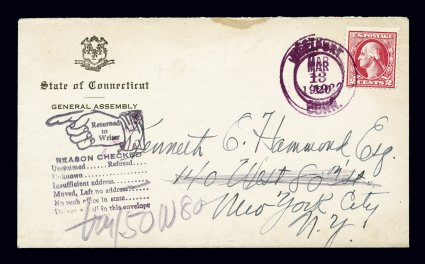 State of Connecticut
GENERAL ASSEMBLY
Returned
to
Writer
REASON CHECKED
Unclaimed...... Refused......
Unknown
Insufficient address
Moved, Left no address
No such office in state
in this envelope
WESTPORT
MAR
13
CONN.
U.S. POSTAGE
2 CENTS 2
Kenneth C. Hammond Esq.
140 West 80th St
New York City
N.Y.
150 W 80